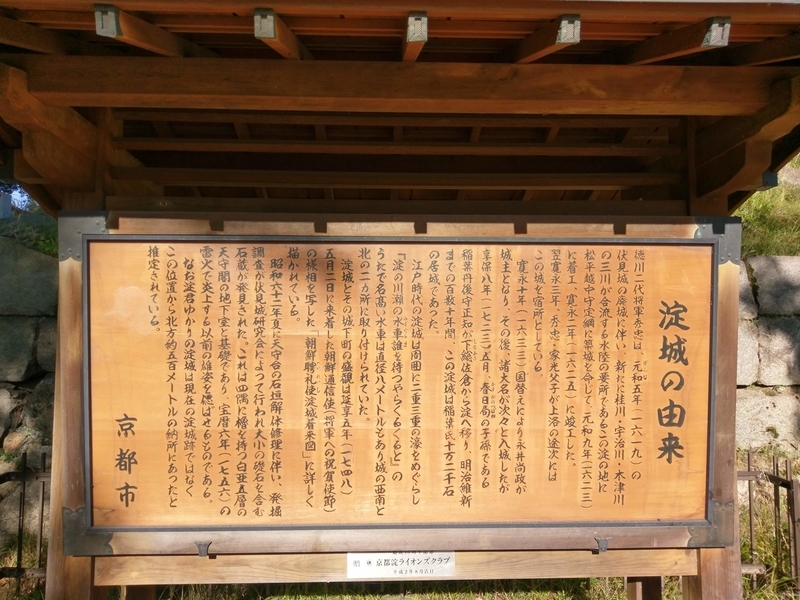 淀城の由来
徳川二代将軍秀忠は、元和五年(一六一九)の
伏見城の廃城に伴い、新たに桂川・宇治川・木津川
の三川が合流する水陸の要所であるこの淀の地に
松平越中守定綱に築城を命じ、元和九年(一六二三)
に着工、寛永二年(一六二五)に竣工した。
翌寛永三年、秀忠・家光父子が上洛の途次には
この城を宿所としている。
寛永十年(一六三三)国替えにより永井尚政が
城主となり、その後、諸大名が次々と入城したが
享保八年(一七二三)五月、春日局の子孫である
稲葉丹後守正知が下総佐倉から淀へ移り、明治維新
までの百数十年間、この淀城は稲葉氏十万二千石
の居城であった。
江戸時代の淀城は周囲に二重三重の濠をめぐらし
「淀の川瀬の水車誰を待つやらくるくると」の
うたで名高い水車は直径八メートルもあり城の西南と
北の二カ所に取り付けられていた。
淀城とその城下町の盛観は延享五年(一七四八)
五月二日に来着した朝鮮通信使(将軍への祝賀使節)
の様相を写した「朝鮮聘礼使淀城着来図」に詳しく
描かれている。
昭和六十二年夏に天守台の石垣解体修理に伴い、発掘
調査が伏見城研究会によって行われ大小の礎石を含む
石蔵が発見された。これは四隅に櫓を持つ白亜五層の
天守閣の地下室と基礎であり、宝暦六年(一七五六)の
雷火で炎上する以前の雄姿を偲ばせるものである。
なお淀君ゆかりの淀城は現在の淀城跡ではなく
この位置から北方約五百メートルの納所にあったと
推定されている。
京都市
贈 京都淀ライオンズクラブ